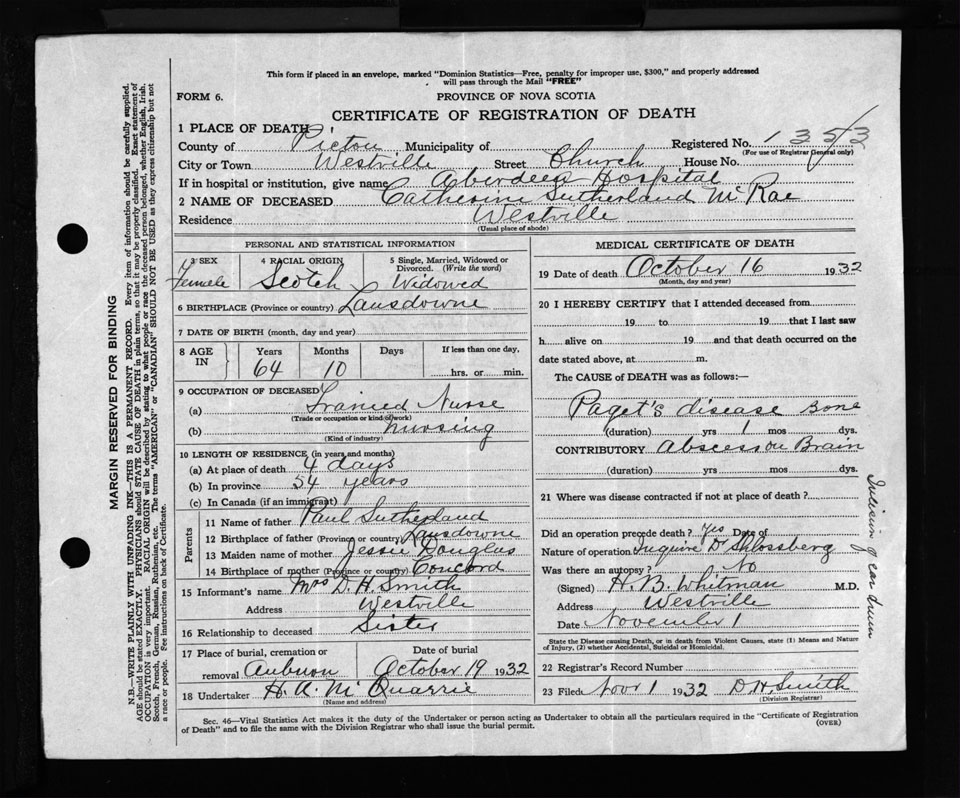 This form if placed in an envelope, marked "Dominion Statistics—Free, penalty for improper use, $300," and properly addressed
will pass through the Mail "FREE"
FORM 6.
PROVINCE OF NOVA SCOTIA
CERTIFICATE OF REGISTRATION OF DEATH
1 PLACE OF DEATH
County of Pictou Municipality of Registered No. 1353
(For use of Registrar General only)
City or Town Westville Street Church House No.
If in hospital or institution, give name Aberdeen Hospital
2 NAME OF DECEASED Catherine Sutherland McRae
Residence Westville
(Usual place of abode)
PERSONAL AND STATISTICAL INFORMATION
3 SEX Female
4 RACIAL ORIGIN Scotch
5 Single, Married, Widowed or Divorced. (Write the word) Widowed
6 BIRTHPLACE (Province or country) Lansdowne
7 DATE OF BIRTH (month, day and year)
8 AGE IN
Years Months Days If less than one day,
64 10 hrs. or min.
9 OCCUPATION OF DECEASED
(a) Trained Nurse
(Trade or occupation or kind of work)
(b) nursing
(Kind of industry)
10 LENGTH OF RESIDENCE (in years and months)
(a) At place of death 4 days
(b) In province 54 years
(c) In Canada (if an immigrant)
Parents
11 Name of father Paul Sutherland
12 Birthplace of father (Province or country) Lansdowne
13 Maiden name of mother Jessie Douglas
14 Birthplace of mother (Province or country) Concord
15 Informant's name Mrs D. H. Smith
Address Westville
16 Relationship to deceased Sister
17 Place of burial, cremation or removal Auburn
Date of burial October 19 1932
18 Undertaker H. A. McQuarrie
(Name and address)
MEDICAL CERTIFICATE OF DEATH
19 Date of death October 16 1932
(Month, day and year)
20 I HEREBY CERTIFY that I attended deceased from
19 to 19 that I last saw
h alive on 19 and that death occurred on the
date stated above, at m.
The CAUSE of DEATH was as follows:—
Paget's disease Bone
(duration) yrs 1 mos dys.
CONTRIBUTORY Abscess on Brain
(duration) yrs mos dys.
21 Where was disease contracted if not at place of death?
Did an operation precede death? Yes Date of
Nature of operation Inquire Dr Shlossberg
Was there an autopsy? No
(Signed) H. B. Whitman M.D.
Address Westville
Date November 1
State the Disease causing Death, or in death from Violent Causes, state (1) Means and Nature
of Injury, (2) whether Accidental, Suicidal or Homicidal.
22 Registrar's Record Number
23 Filed Nov 1 1932 D. H. Smith
(Division Registrar)
of ear drum
Sec. 46—Vital Statistics Act makes it the duty of the Undertaker or person acting as Undertaker to obtain all the particulars required in the "Certificate of Registration
of Death" and to file the same with the Division Registrar who shall issue the burial permit.
(OVER)
MARGIN RESERVED FOR BINDING
N.B.—WRITE PLAINLY WITH UNFADING INK—THIS IS A PERMANENT RECORD. Every item of information should be carefully supplied.
AGE should be stated EXACTLY. PHYSICIANS should STATE CAUSE OF DEATH in plain terms, so that it may be properly classified. Exact statement of
OCCUPATION is very important. RACIAL ORIGIN will be described by stating to what people or race the deceased person belonged, whether English, Irish,
Scotch, French, German, Russian, Ruthenian, etc. The terms "AMERICAN" or "CANADIAN" SHOULD NOT BE USED as they express citizenship but not
a race or people. See instructions on back of Certificate.